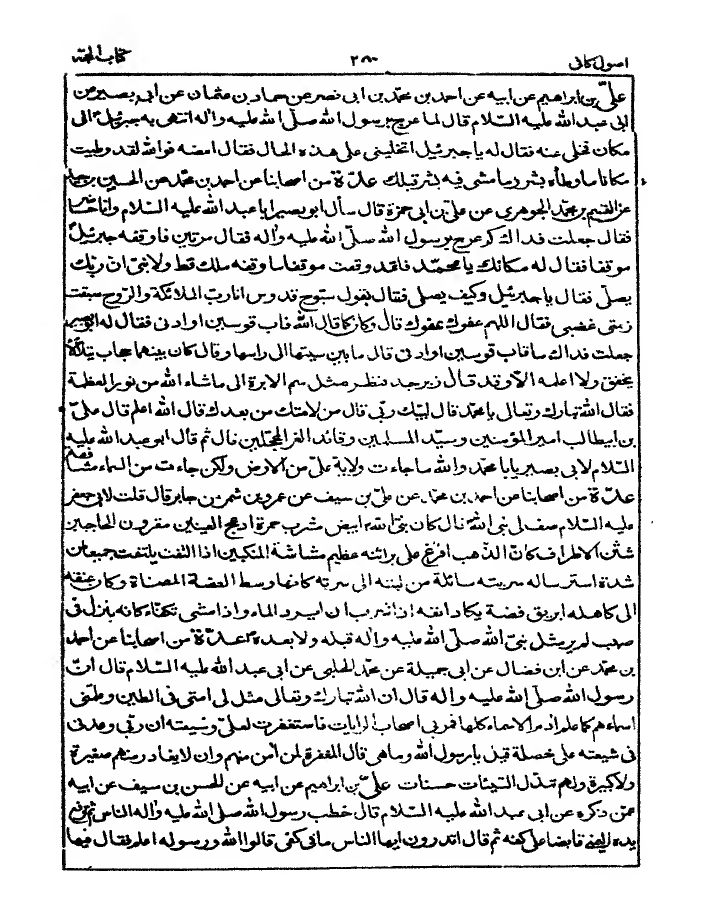 اصول كافى ٢٨٠ كتاب الحجة
علىّ بن ابراهيم عن ابيه عن احمد بن محمّد بن ابى نصر عن حماد بن عثمان عن ابى بصير عن
ابى عبد الله عليه السّلام قال لما عرج برسول الله صلّى الله عليه واله انتهى به جبرئيل الى
مكان فخلى عنه فقال له يا جبرئيل اتخلينى على هذه الحال فقال امضه فوالله لقد وطيت
مكانا ما وطأه بشر وما مشى فيه بشر قبلك عدّة من اصحابنا عن احمد بن محمّد عن الحسين بن سعيد
عن القسم بن محمّد الجوهرى عن علىّ بن ابى حمزة قال سأل ابو بصير ابا عبد الله عليه السّلام وانا حاضر
فقال جعلت فداك كم عرج برسول الله صلّى الله عليه واله فقال مرتين فاوقفه جبرئيل
موقفا فقال له مكانك يا محمّد فلقد وقفت موقفا ما وقفه ملك قط ولا نبىّ ان ربّك
يصلّى فقال يا جبرئيل وكيف يصلى فقال يقول سبّوح قدوس انا ربّ الملائكة والرّوح سبقت
رحمتى غضبى فقال اللهم عفوك عفوك قال وكان كما قال الله قاب قوسين او ادنى فقال له ابو بصير
جعلت فداك ما قاب قوسين او ادنى قال ما بين سيتها الى راسها وقال كان بينهما حجاب يتلألأ
يخفق ولا اعلمه الّا وقد قال زبرجد فنظر فى مثل سم الابرة الى ماشاء الله من نور العظمة
فقال الله تبارك وتعالى يا محمّد قال لبيّك ربّى قال من لامتك من بعدك قال الله اعلم قال علىّ
بن ابيطالب امير المؤمنين وسيّد المسلمين وقائد الغر المحجّلين قال ثم قال ابو عبد الله عليه
السّلام لابى بصير يا با محمّد والله ما جاءت ولاية علىّ من الارض ولكن جاءت من السماء مشافهة
عدّة من اصحابنا عن احمد بن محمّد عن علىّ بن سيف عن عمرو بن شمر عن جابر قال قلت لابى جعفر
عليه السّلام صف لى نبى الله قال كان نبىّ الله ابيض مشرب حمرة ادعج العينين مقرون الحاجبين
شثن الاطراف كانّ الذهب افرغ على براثنه عظيم مشاشة المنكبين اذا التفت يلتفت جميعا من
شدة استرساله سربته سائلة من لبته الى سرته كانها وسط الفضة المصفاة وكان عنقه
الى كاهله ابريق فضة يكاد انفه اذا شرب ان يرد الماء واذا مشى تكفّأ كانه ينزل فى
صبب لم ير مثل نبىّ الله صلّى الله عليه واله قبله ولا بعده عدّة من اصحابنا عن احمد
بن محمّد عن ابن فضال عن ابى جميلة عن محمّد الحلبى عن ابى عبد الله عليه السّلام قال انّ
رسول الله صلّى الله عليه واله قال ان الله تبارك وتعالى مثل لى امتى فى الطين وعلمنى
اسماءهم كما علم ادم الاسماء كلها فمر بى اصحاب الرايات فاستغفرت لعلىّ وشيعته ان ربّى وعدنى
فى شيعة على خصلة قيل يا رسول الله وما هى قال المغفرة لمن آمن منهم وان لا يغادر منهم صغيرة
ولا كبيرة ولهم تبدّل السّيئات حسنات علىّ بن ابراهيم عن ابيه عن الحسن بن سيف عن ابيه
عمّن ذكره عن ابى عبد الله عليه السّلام قال خطب رسول الله صلى الله عليه واله الناس ثم رفع
يده اليمنى قابضا على كفه ثم قال اتدرون ايها الناس ما فى كفى قالوا الله ورسوله اعلم فقال فيها